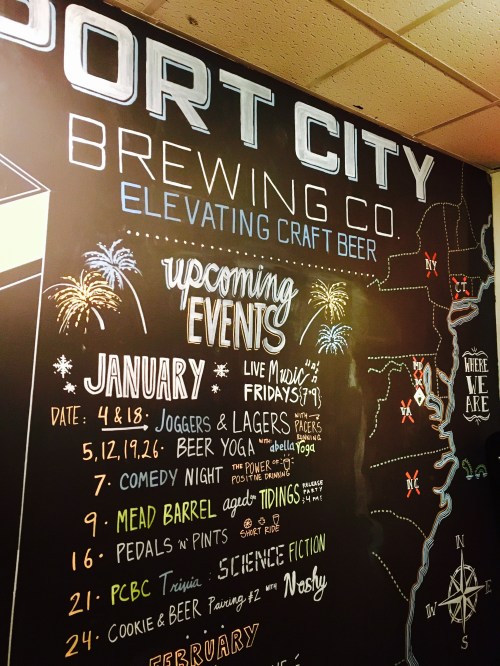 PORT CITY
BREWING CO.
ELEVATING CRAFT BEER
upcoming
EVENTS
JANUARY
LIVE Music
FRIDAYS {7-9}
DATE: 4 & 18· JOGGERS & LAGERS WITH PACERS RUNNING
5, 12, 19, 26· BEER YOGA WITH abella Yoga
7· COMEDY NIGHT THE POWER OF POSITIVE DRINKING
9· MEAD BARREL aged TIDINGS RELEASE PARTY 4PM!
16· PEDALS 'n' PINTS SHORT RIDE
21· PCBC Trivia: SCIENCE FICTION
24· COOKIE & BEER Pairing #2 WITH Noshy
FEBRUARY
NY
CT
VA
NC
WHERE
WE
ARE
N
W
E
S